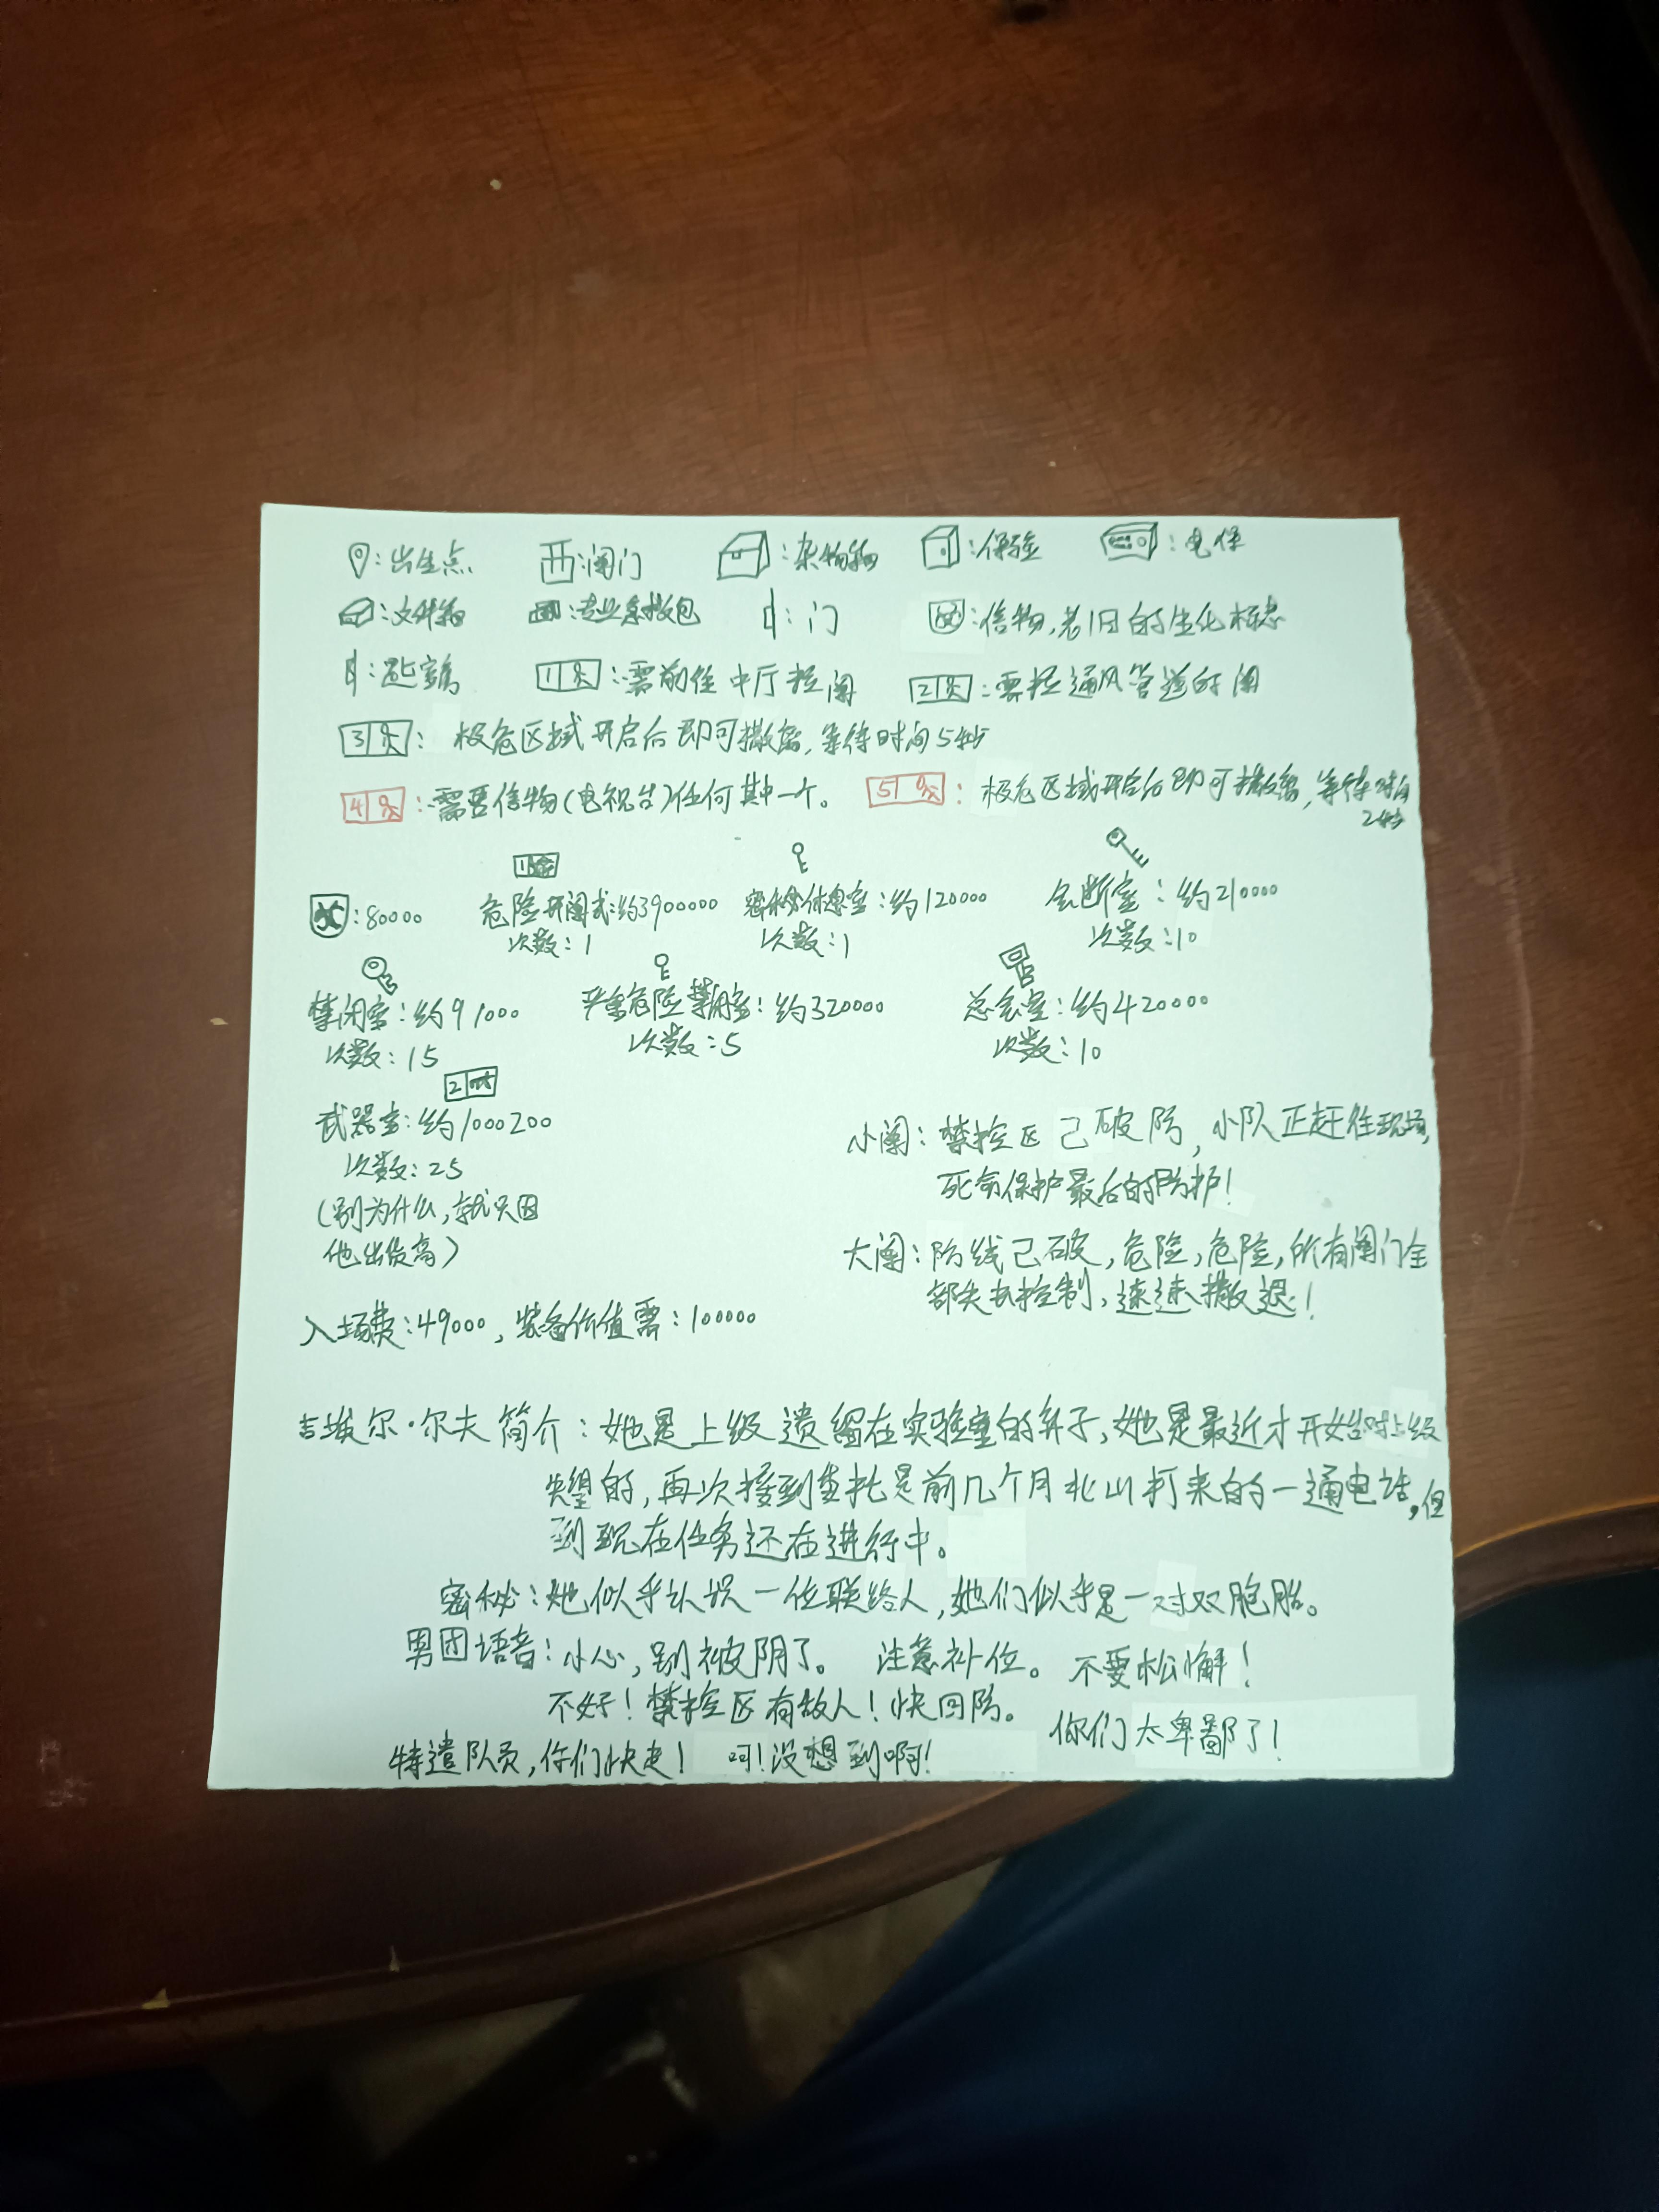 ：出生点 ：闸门 ：杂物箱 ：保险 ：电保
：文件箱 ：专业急救包 ：门 ：信物，老旧的生化标志
1 ：需前往中厅拉闸 2 ：需拉通风管道的闸
3 ：极危区域开启后即可撤离，等待时间5秒
4 ：需要信物（电视台）任何其中一个。 5 ：极危区域开启后即可撤离，等待时间
2秒
：80000 危险开闸式：约3900000 密秘休息室：约120000 会断室：约210000
次数：1 次数：1 次数：10
禁闭室：约91000 严重危险禁闭室：约320000 总会室：约420000
次数：15 次数：5 次数：10
2
武器室：约1000200
次数：25
（别为什么，就只因
他出货高）
小闸：禁控区已破防，小队正赶往现场，
死命保护最后的防护！
大闸：防线已破，危险，危险，所有闸门全
部失去控制，速速撤退！
入场费：49000，装备价值需：100000
吉埃尔·尔夫简介：她是上级遗留在实验室的弃子，她也是最近才开始对上级
失望的，再次接到委托是前几个月北山打来的一通电话，但
到现在任务还在进行中。
密秘：她似乎认识一位联络人，她们似乎是一对双胞胎。
男团语音：小心，别被阴了。 注意补位。 不要松懈！
不好！禁控区有敌人！快回防。 你们太卑鄙了！
特遣队员，你们快走！ 呵！没想到啊！